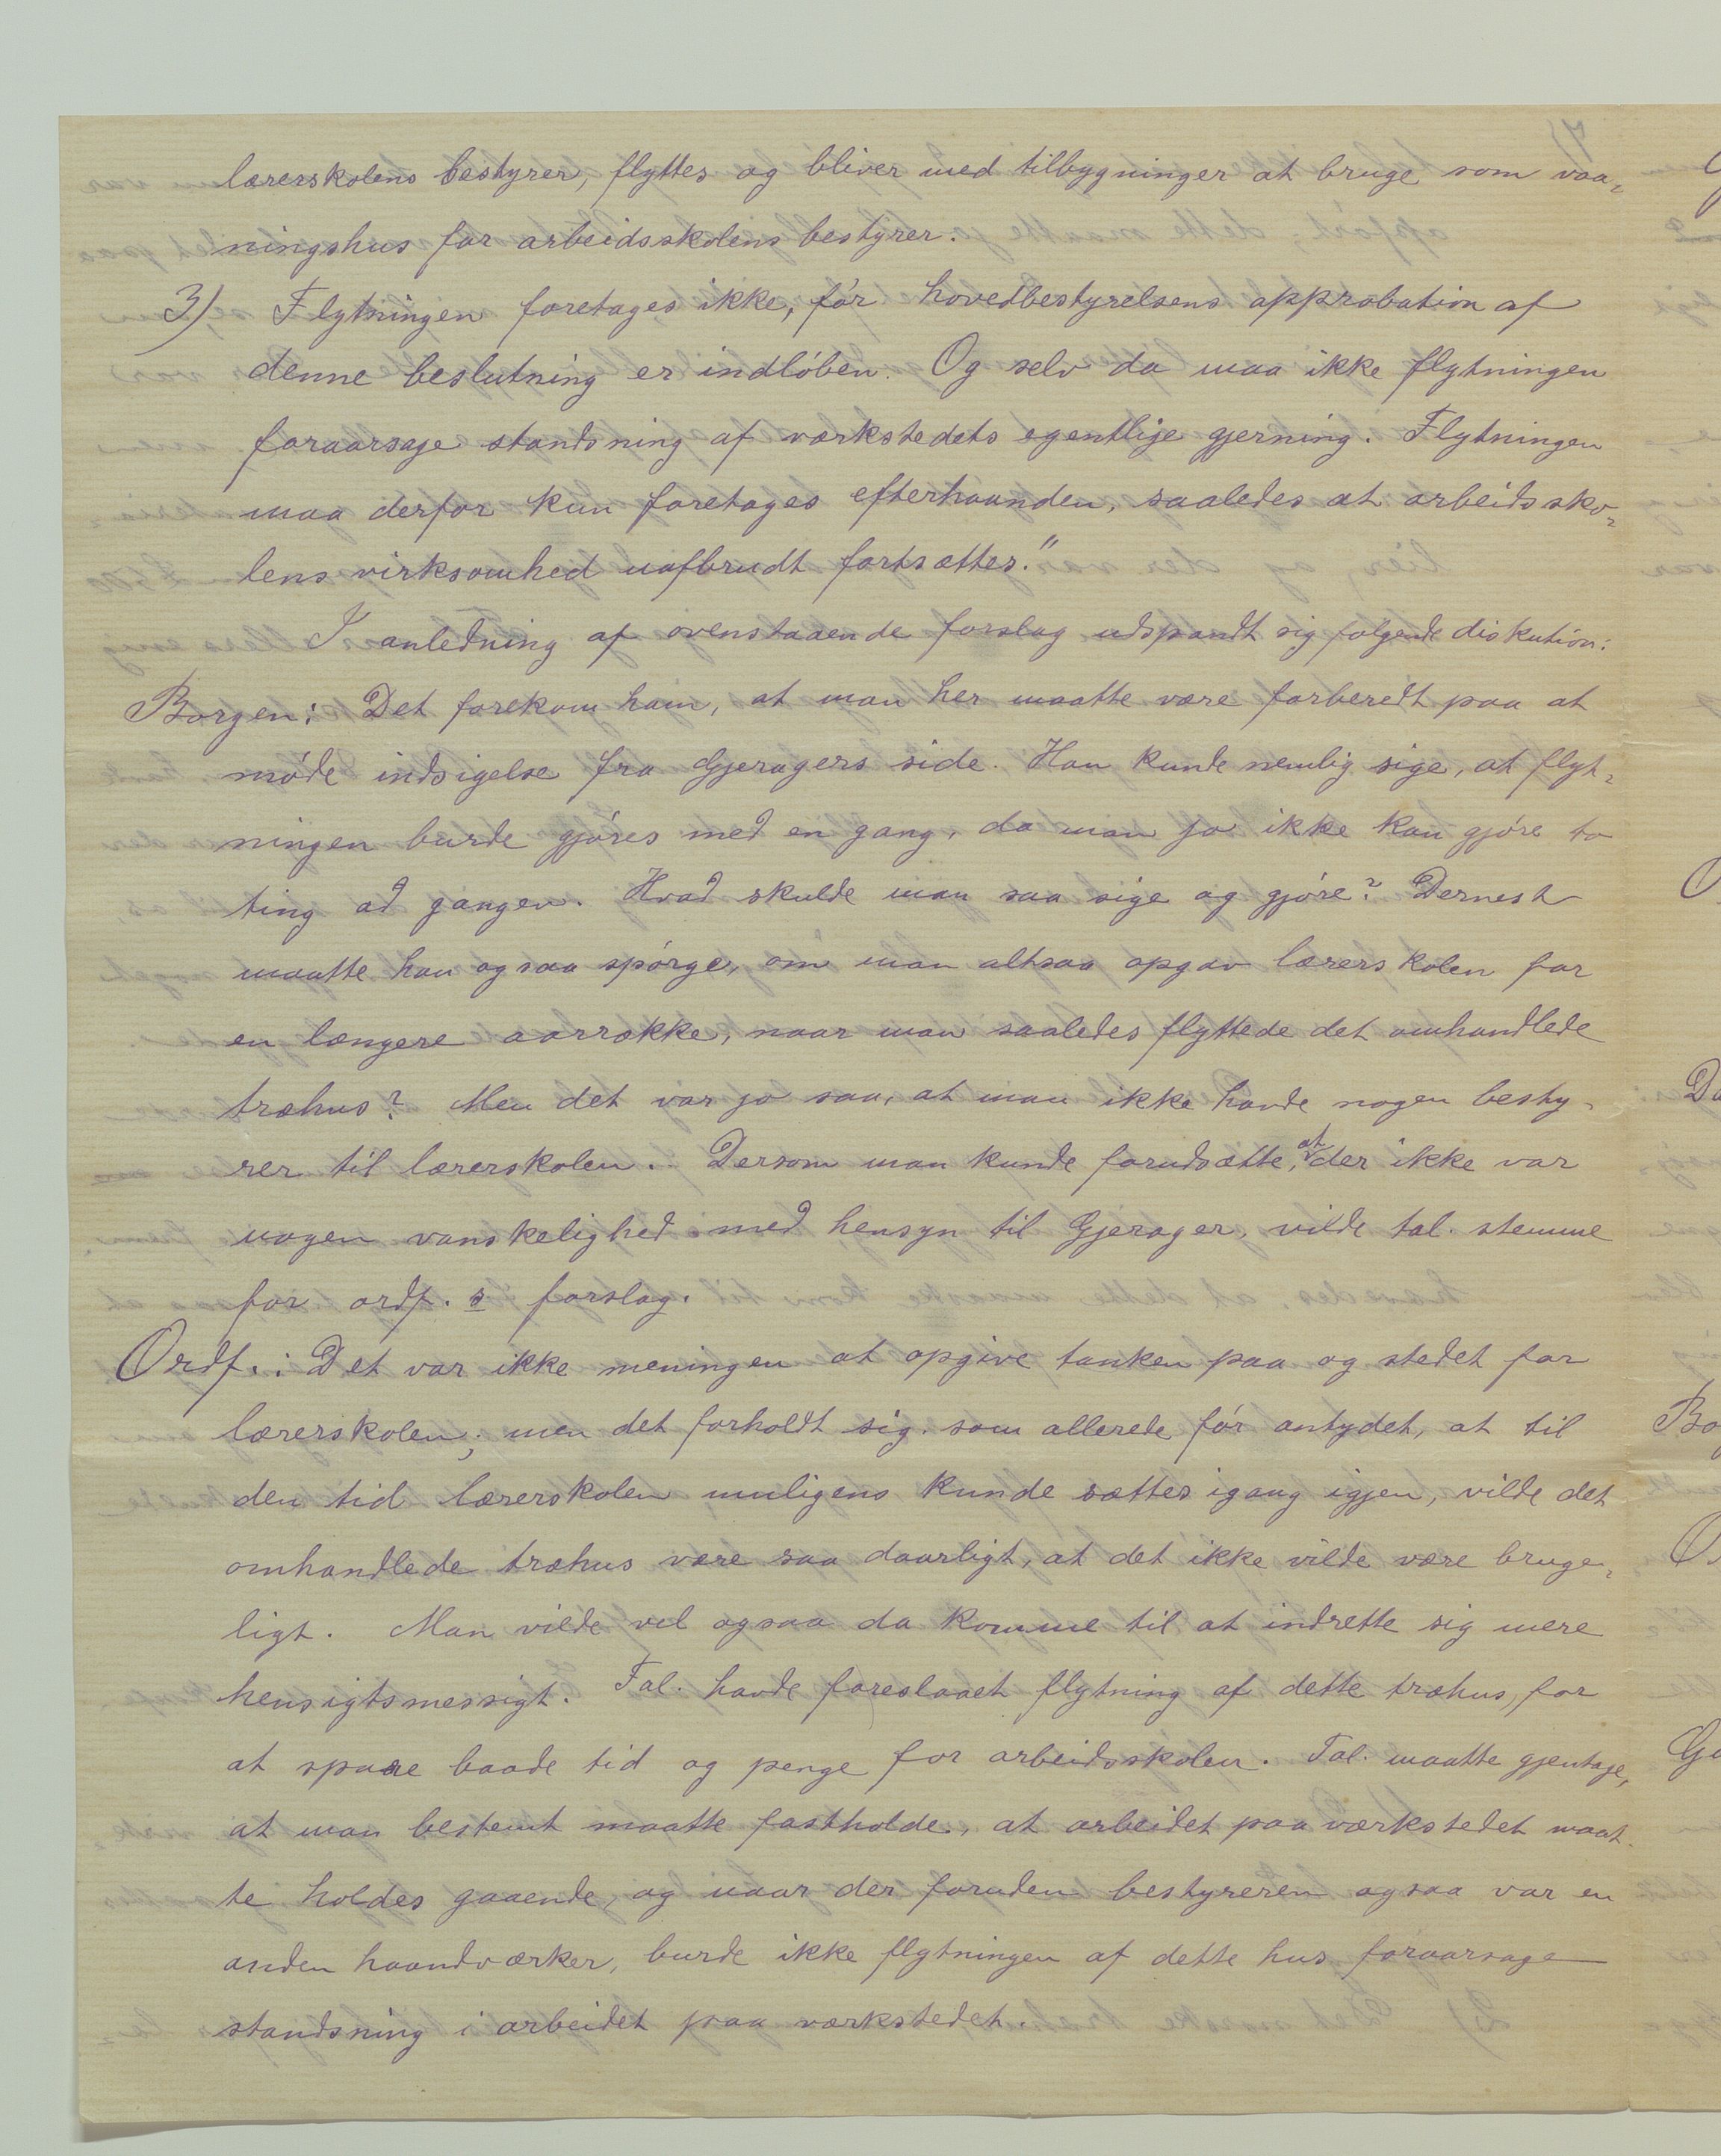 lærerskolens bestyrer, flyttes og bliver med tilbygninger at bruge som vaa-
ningshus for arbeidsskolens bestyrer.
3) Flytningen foretages ikke, før hovedbestyrelsens approbation af
denne beslutning er indløben. Og selv da maa ikke flytningen
foraarsage standsning af værkstedets egentlige gjerning. Flytningen
maa derfor kun foretages efterhaanden, saaledes at arbeidssko-
lens virksomhed uafbrudt fortsættes."
I anledning af ovenstaaende forslag udspandt sig følgende diskution:
Borgen: Det forekom ham, at man her maatte være forberedt paa at
møde indsigelse fra Gjeragers side. Han kunde nemlig sige, at flyt-
ningen burde gjøres med en gang, da man jo ikke kan gjøre to
ting ad gangen. Hvad skulde man saa sige og gjøre? Dernest
maatte han ogsaa spørge, om man altsaa opgav lærerskolen for
en længere aarrække, naar man saaledes flyttede det omhandlede
træhus? Men det var jo saa, at man ikke havde nogen besty-
rer til lærerskolen. Dersom man kunde forudsætte, at der ikke var
nogen vanskelighed med hensyn til Gjerager, vilde tal. stemme
for ordf. s forslag.
Ordf.: Det var ikke meningen at opgive tanken paa og stedet for
lærerskolen; men det forholdt sig, som allerede før antydet, at til
den tid lærerskolen muligens kunde sættes igang igjen, vilde det
omhandlede træhus være saa daarligt, at det ikke vilde være bruge-
ligt. Man vilde vel ogsaa da komme til at indrette sig mere
hensigtsmessigt. Tal. havde foreslaaet flytning af dette træhus, for
at spare baade tid og penge for arbeidsskolen. Tal. maatte gjentage,
at man bestemt maatte fastholde, at arbeidet paa værkstedet maat-
te holdes gaaende, og naar der foruden bestyreren ogsaa var en
anden haandværker, burde ikke flytningen af dette hus foraarsage
standsning i arbeidet paa værkstedet.